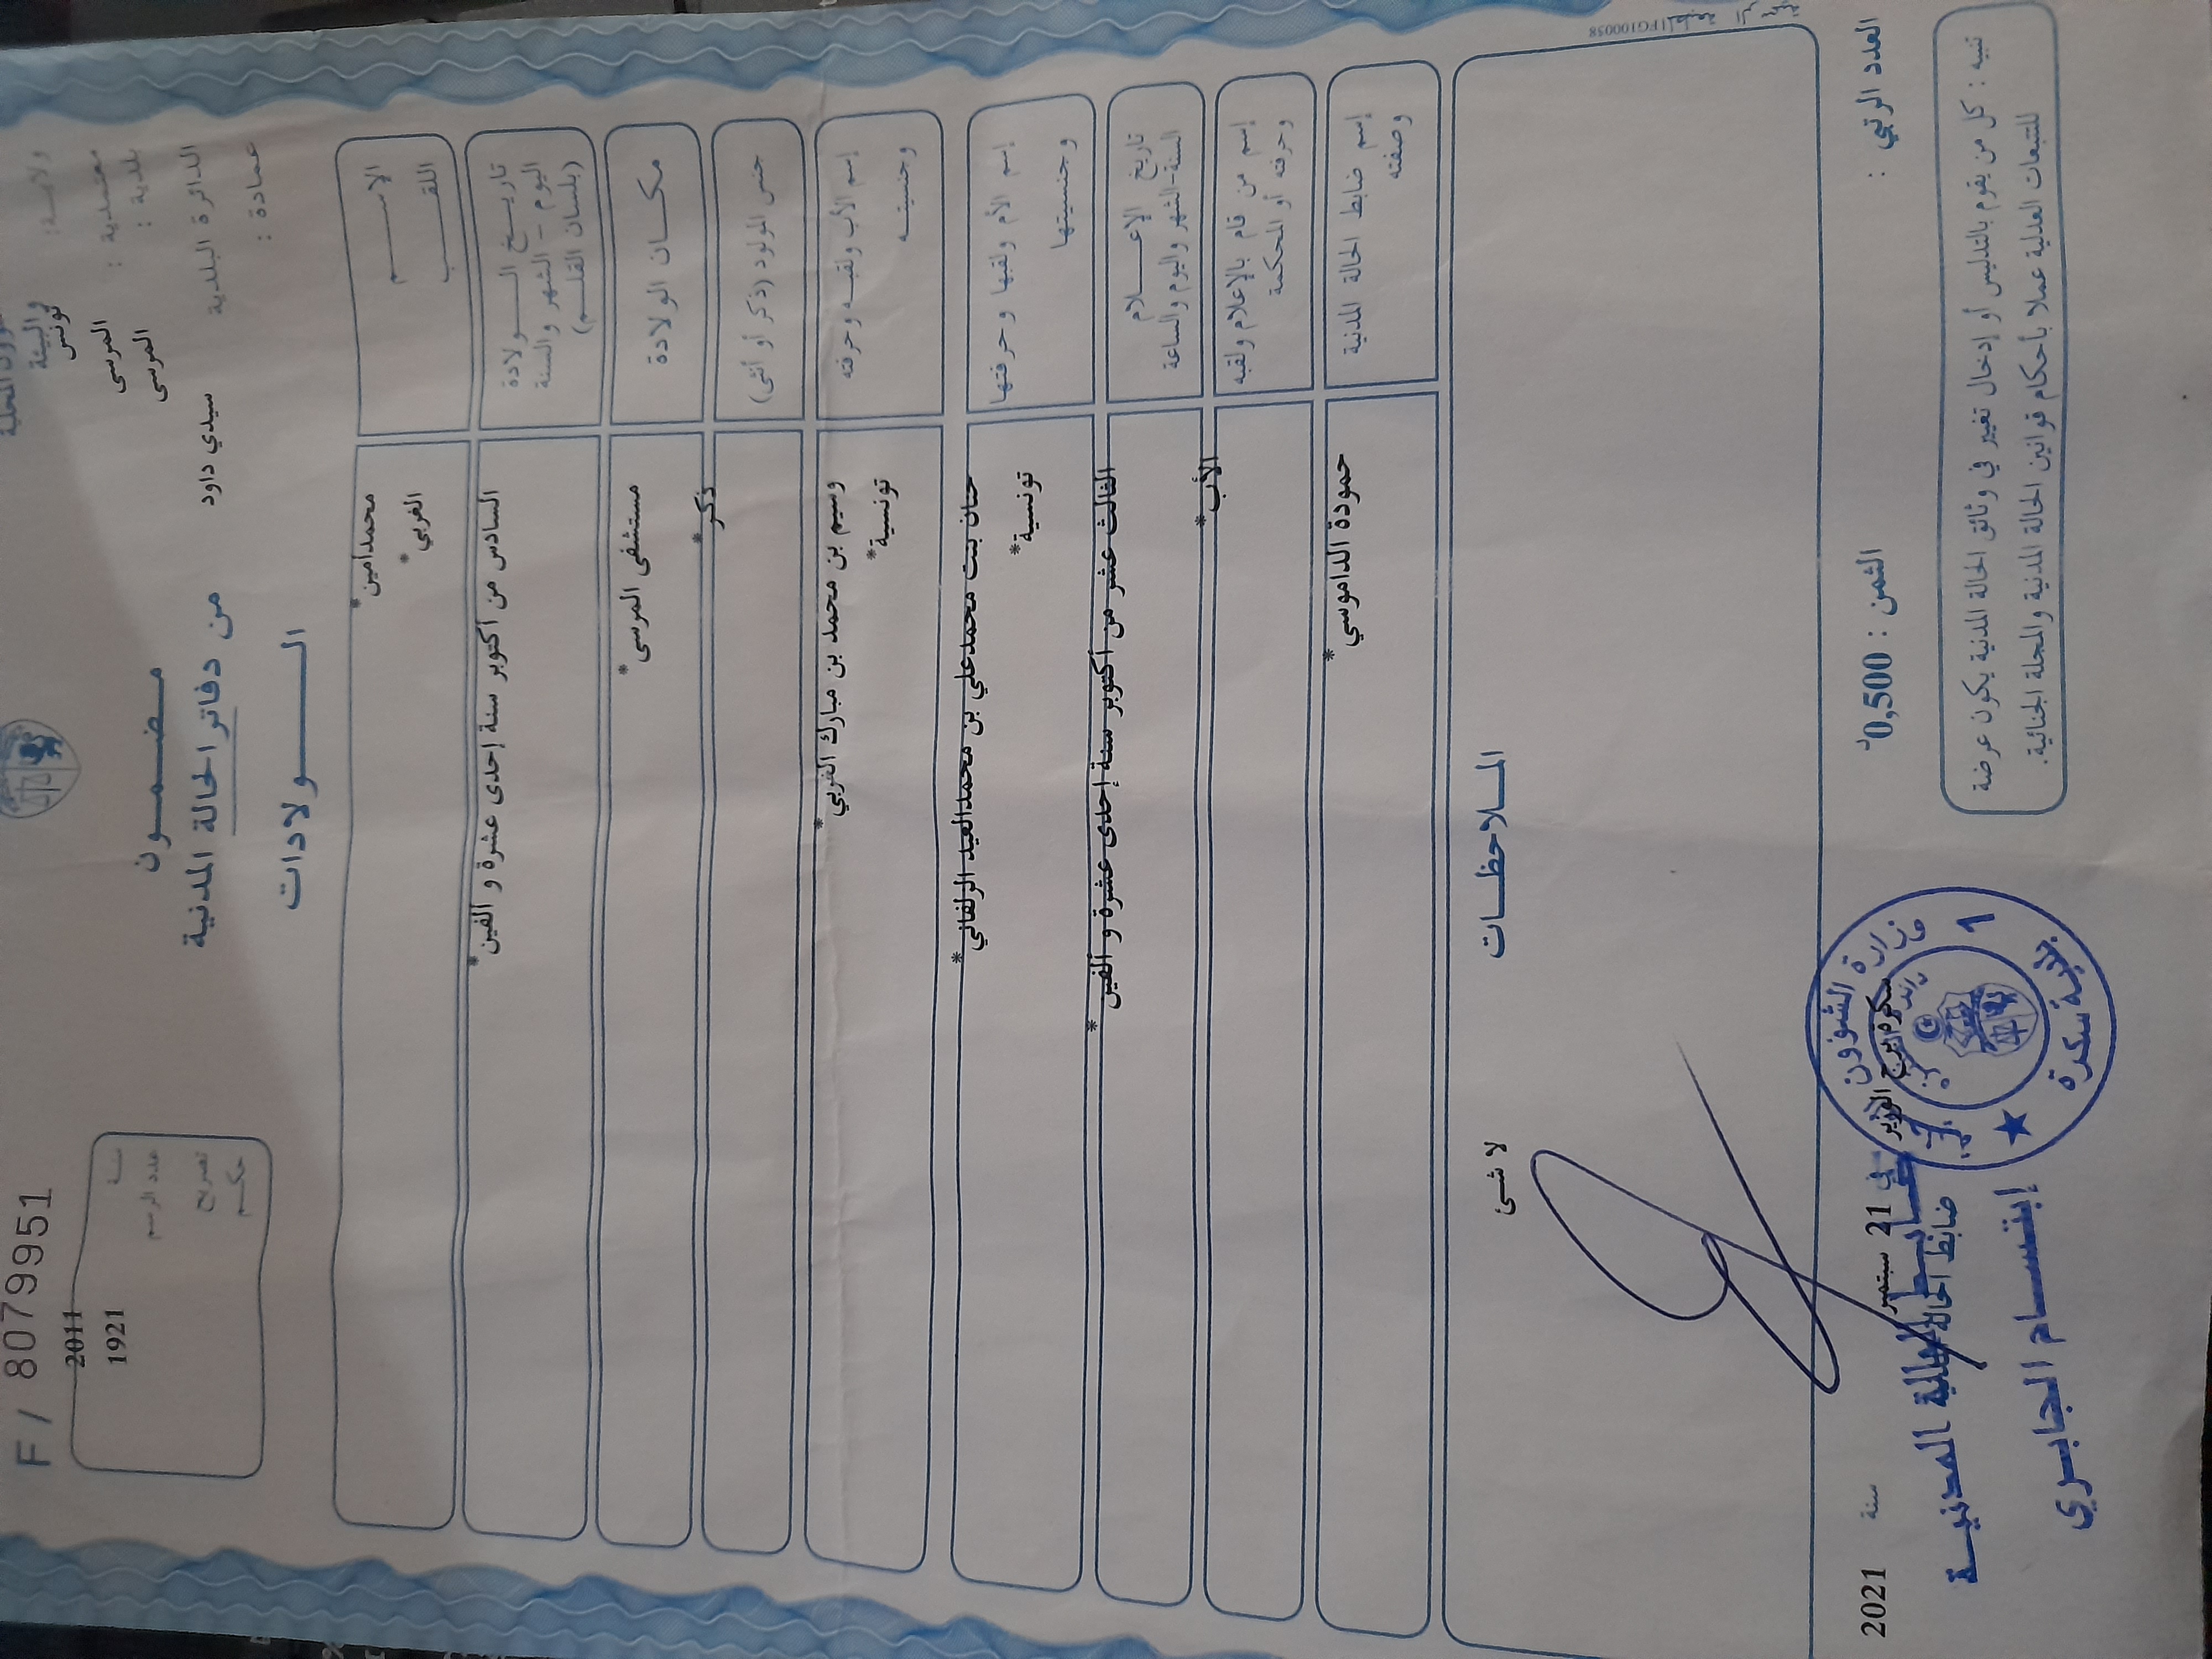 F / 8079951
والبيئة
ولايـــة: تونس
معتمدية : المرسى
بلدية : المرسى
الدائرة البلدية سيدي داود
عمادة :
مـضـمـــون
من دفاتر الحالة المدنية
الــــــولادات
سنــة 2011
عدد الرسم 1921
تصريح
حكــم
الاســــــم محمدأمين*
اللقــــــب الغربي*
تاريــــخ الــــــولادة
اليوم - الشهر والسنة
(بلسان القلــم)
السادس من أكتوبر سنة إحدى عشرة و ألفين*
مكــــان الولادة مستشفى المرسى*
جنس المولود (ذكر أو أنثى) ذكر*
إسم الأب ولقبـه وحرفته وسيم بن محمد بن مبارك الغربي*
وجنسيتــه تونسية*
إسم الأم ولقبها وحرفتها حنان بنت محمدعلي بن محمدالعيد الزلفاني*
وجنسيتها تونسية*
تاريخ الإعــــلام
السنة-الشهر واليوم والساعة
الثالث عشر من أكتوبر سنة إحدى عشرة و ألفين*
إسم من قام بالإعلام ولقبه
وحرفته أو المحكمة
الأب*
إسم ضابط الحالة المدنية
وصفته
حمودة الداموسي*
المـــلاحظـــات
لا شئ
العدد الرتبي :
الثمن : 0,500د
سكرة برج الوزير في 21 سبتمبر سنة 2021
ضابط الحالة المدنية
ضابط الحالة المدنيــة
إبتســـام الجابــري
وزارة الشؤون
بلدية سكرة
1
تنبيه : كل من يقوم بالتدليس أو إدخال تغيير في وثائق الحالة المدنية يكون عرضة
للتتبعات العدلية عملا بأحكام قوانين الحالة المدنية والمجلة الجنائية.